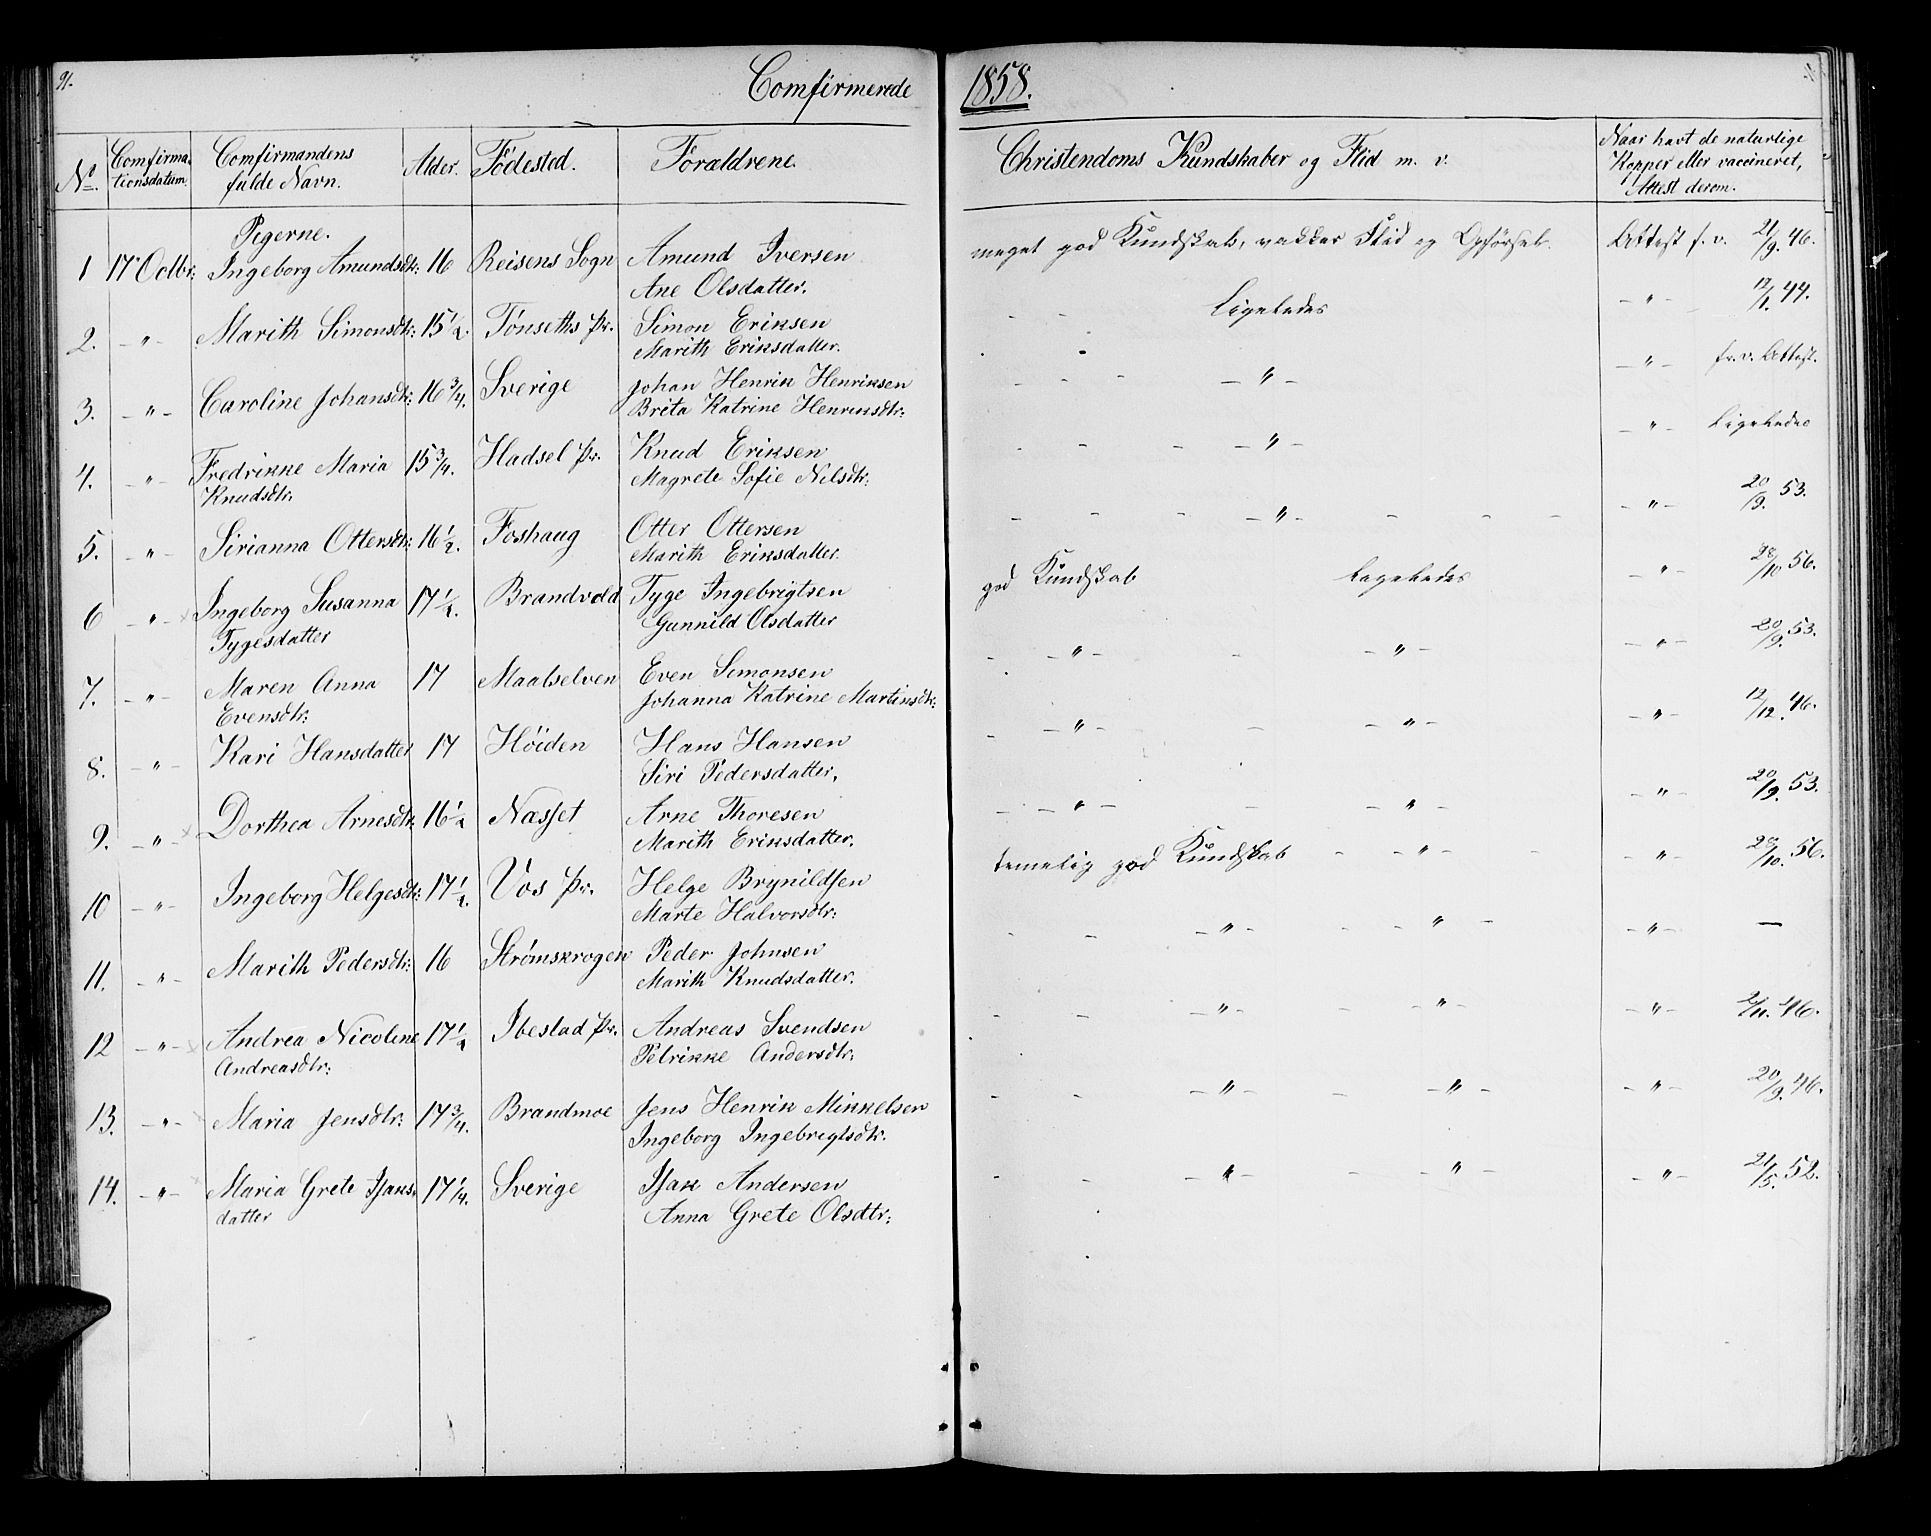 91.
Comfirmerede 1858.
No. Comfirmationsdatum. Comfirmandens fulde Navn. Alder. Födested. Forældrene. Christendoms Kundskaber og Flid m. v. Naar havt de naturlige Kopper eller vaccineret, Attest derom.
Pigerne.
1 17 Octbr: Ingeborg Amundsdtr: 16 Reisens Sogn Amund Iversen meget god Kundskab, vakker Flid og Opförsel. Attest f. v. 21/9. 46.
Ane Olsdatter.
2. -"- Marith Simonsdtr: 15 1/2. Tönseths Pr. Simon Eriksen - - Ligeledes -"- 12/1. 44.
Marith Eriksdatter.
3. -"- Caroline Johansdtr: 16 3/4. Sverige Johan Henrik Henriksen - - - -"- -"- fr. v. Attest.
Brita Katrine Henriksdtr:
4. -"- Fredrikke Maria 15 3/4. Hadsel Pr. Knud Eriksen - - - -"- -"- Ligeledes
Knudsdtr. Magrete Sofie Nilsdtr:
5. -"- Sirianna Ottersdtr: 16 1/2. Foshaug Otter Ottersen - - - -"- - - - -"- 20/9. 53.
Marith Eriksdatter.
6 -"- Ingeborg Susanna 17 1/2. Brandvold Tyge Ingebrigtsen god Kundskab Ligeledes -"- 28/10. 56.
Tygesdatter Gunnild Olsdatter
7. -"- Maren Anna 17 Maalselven Even Simonsen - -"- - -"- -"- 20/9. 53.
Evensdtr: Johanna Katrine Martinsdtr.
8. -"- Kari Hansdatter 17 Höiden Hans Hansen - -"- - -"- -"- 12/12. 46.
Siri Pedersdatter.
9. -"- Dorthea Arnesdtr. 16 1/2 Næsset Arne Thoresen - -"- - -"- -"- 20/9. 53.
Marith Eriksdatter.
10 -"- Ingeborg Helgesdtr: 17 1/2. Vos Pr. Helge Brynildsen temelig god Kundskab - -"- - -"- 28/10. 56.
Marte Halvorsdtr:
11. -"- Marith Pedersdtr: 16 Strömskrogen Peder Johnsen - - -"- - - " - -"- —
Marith Knudsdatter.
12 -"- Andrea Nicoline 17 1/2 Ibestad Pr. Andreas Svendsen - - -"- - -"- -"- 2/11. 46.
Andreasdtr: Petrikke Andersdtr:
13. -"- Maria Jensdtr: 17 3/4. Brandmoe Jens Henrik Mikkelsen - - -"- -"- -"- 20/9. 46.
Ingeborg Ingebrigtsdtr.
14. -"- Maria Grete Isaks- 17 1/4. Sverige Isak Andersen - - -"- - -"- -"- 21/5. 52.
datter Anna Grete Olsdtr: